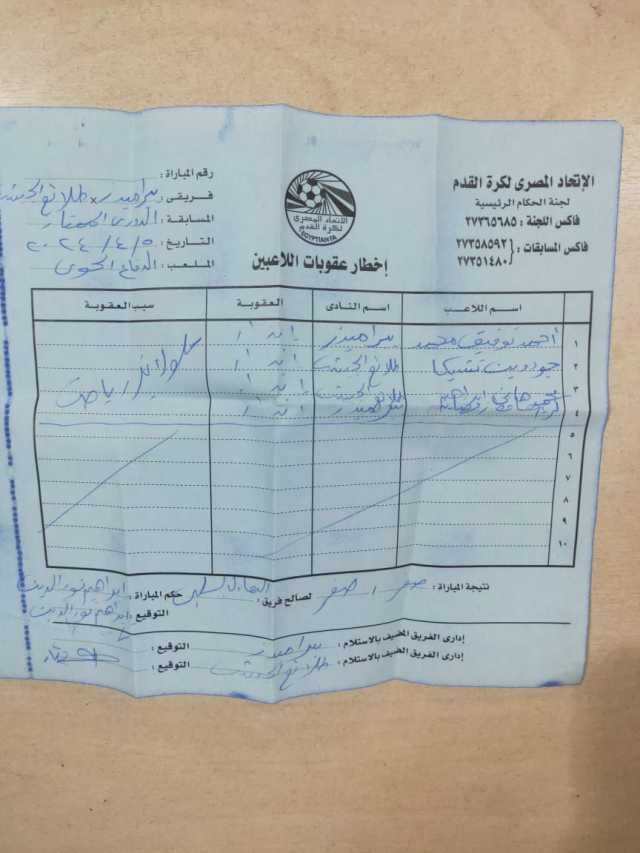 الإتحاد المصرى لكرة القدم
لجنة الحكام الرئيسية
فاكس اللجنة : ٢٧٣٦٥٦٨٥
فاكس المسابقات : ٢٧٣٥٨٥٩٢
٢٧٣٥١٤٨٠
الاتحاد المصرى
لكرة القدم
EGYPTIAN FA
إخطار عقوبات اللاعبين
رقم المباراة :
فريقى : بيراميدز × طلائع الجيش
المسابقة : الدورى الممتاز
التاريخ : ٢٠٢٤/٤/٥
الملعب : الدفاع الجوى
اسم اللاعب اسم النادى العقوبة سبب العقوبة
١ احمد توفيق محمد بيراميدز إنذار سلوك غير رياضى
٢ جودوين تشيكا طلائع الجيش إنذار
٣ الجيش إنذار
٤ إنذار
٥
٦
٧
٨
٩
١٠
نتيجة المباراة : صفر / صفر لصالح فريق : التعادل السلبى حكم المباراة : ابراهيم نور الدين
التوقيع : ابراهيم نور الدين
إدارى الفريق المضيف بالاستلام : بيراميدز التوقيع :
إدارى الفريق الضيف بالاستلام : طلائع الجيش التوقيع :